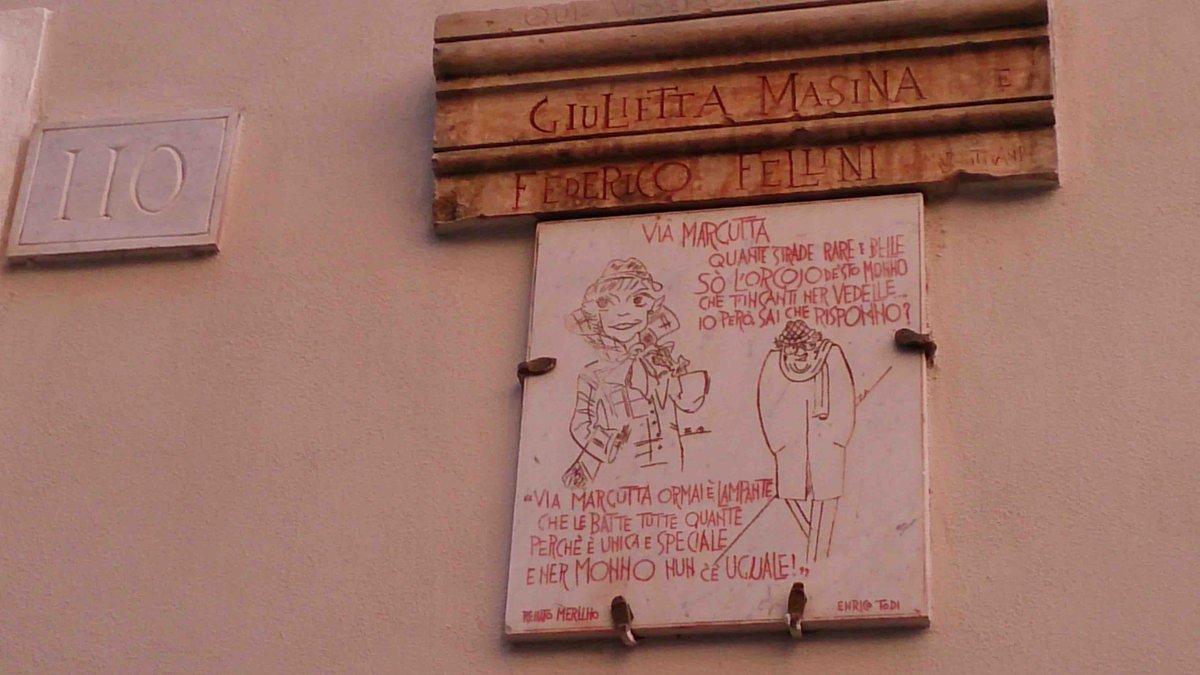 110
QUI VISSERO
GIULIETTA MASINA E
FEDERICO FELLINI
VIA MARGUTTA
QUANTE STRADE RARE E BELLE
SÒ L'ORGOJO DE'STO MONNO
CHE T'INCANTI NER VEDELLE...
IO PERÒ, SAI CHE RISPONNO?
"VIA MARGUTTA ORMAI È LAMPANTE
CHE LE BATTE TUTTE QUANTE
PERCHÈ È UNICA E SPECIALE
E NER MONNO NUN C'È UGUALE!"
RENATO MERLINO
ENRICO TODI